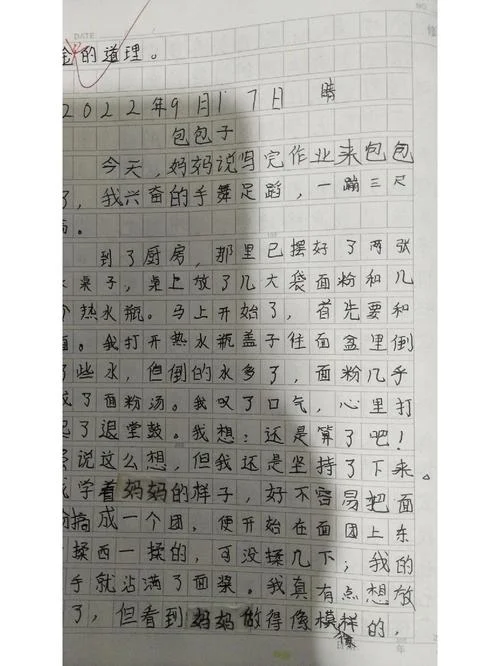 DATE
NO.
的道理。
2022年9月17日 晴
包包子
今天，妈妈说写完作业来包包
了，我兴奋的手舞足蹈，一蹦三尺
高。
到了厨房，那里已摆好了两张
桌子，桌上放了几大袋面粉和几
个热水瓶。马上开始了，首先要和
面。我打开热水瓶盖子往面盆里倒
了些水，但倒的水多了，面粉几乎
成了面粉汤。我叹了口气，心里打
起了退堂鼓。我想：还是算了吧！
说这么想，但我还是坚持了下来。
我学着妈妈的样子，好不容易把面
搞成一个团，便开始在面团上东
揉西一揉的，可没揉几下；我的
手就沾满了面浆。我真有点想放
了，但看到妈妈做得像模样的，